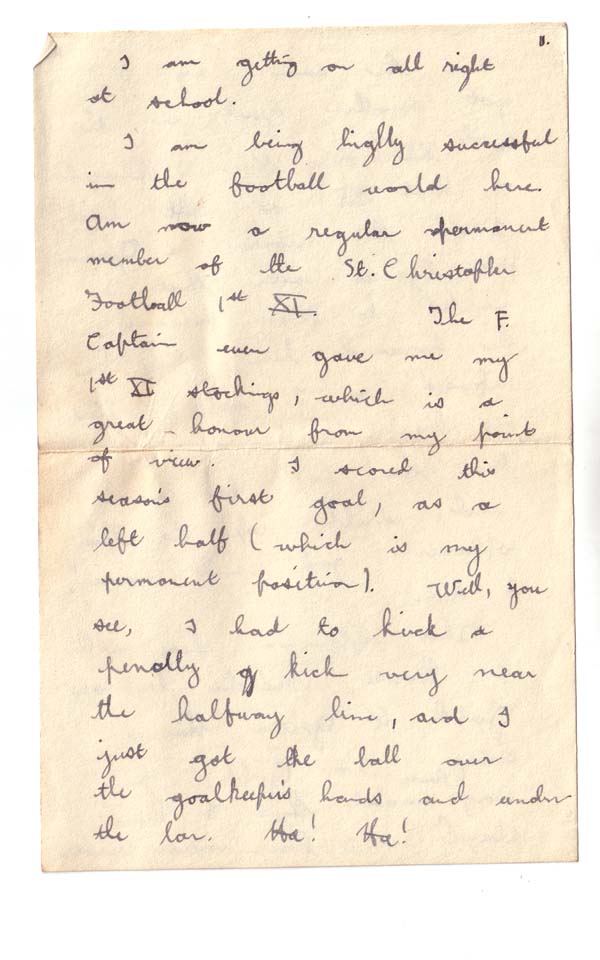 II.
I am getting on all right
at school.
I am being highly successful
in the football world here.
Am now a regular & permanent
member of the St. Christopher
Football 1st XI. The F.
Captain even gave me my
1st XI stockings, which is a
great - honour from my point
of view. I scored this
season's first goal, as a
left half (which is my
permanent position). Well, you
see, I had to kick a
penally kick very near
the halfway line, and I
just got the ball over
the goalkeeper's hands and under
the bar. Ha! Ha!